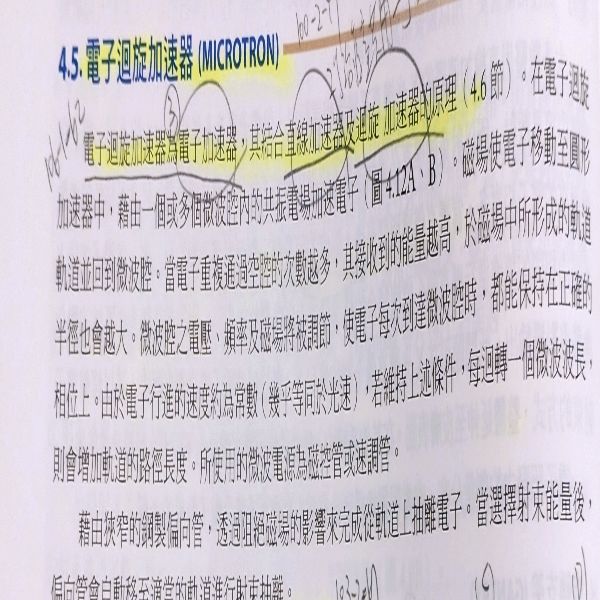 4.5. 電子迴旋加速器 (MICROTRON)
電子迴旋加速器為電子加速器，其結合直線加速器及迴旋 加速器的原理（4.6 節）。在電子迴旋
加速器中，藉由一個或多個微波腔內的共振電場加速電子（圖 4.12A、B）。磁場使電子移動至圓形
軌道並回到微波腔。當電子重複通過空腔的次數越多，其接收到的能量越高，於磁場中所形成的軌道
半徑也會越大。微波腔之電壓、頻率及磁場將被調節，使電子每次到達微波腔時，都能保持在正確的
相位上。由於電子行進的速度約為常數（幾乎等同於光速），若維持上述條件，每迴轉一個微波波長，
則會增加軌道的路徑長度。所使用的微波電源為磁控管或速調管。
藉由狹窄的鋼製偏向管，透過阻絕磁場的影響來完成從軌道上抽離電子。當選擇射束能量後，
偏向管會自動移至適當的軌道進行射束抽離。